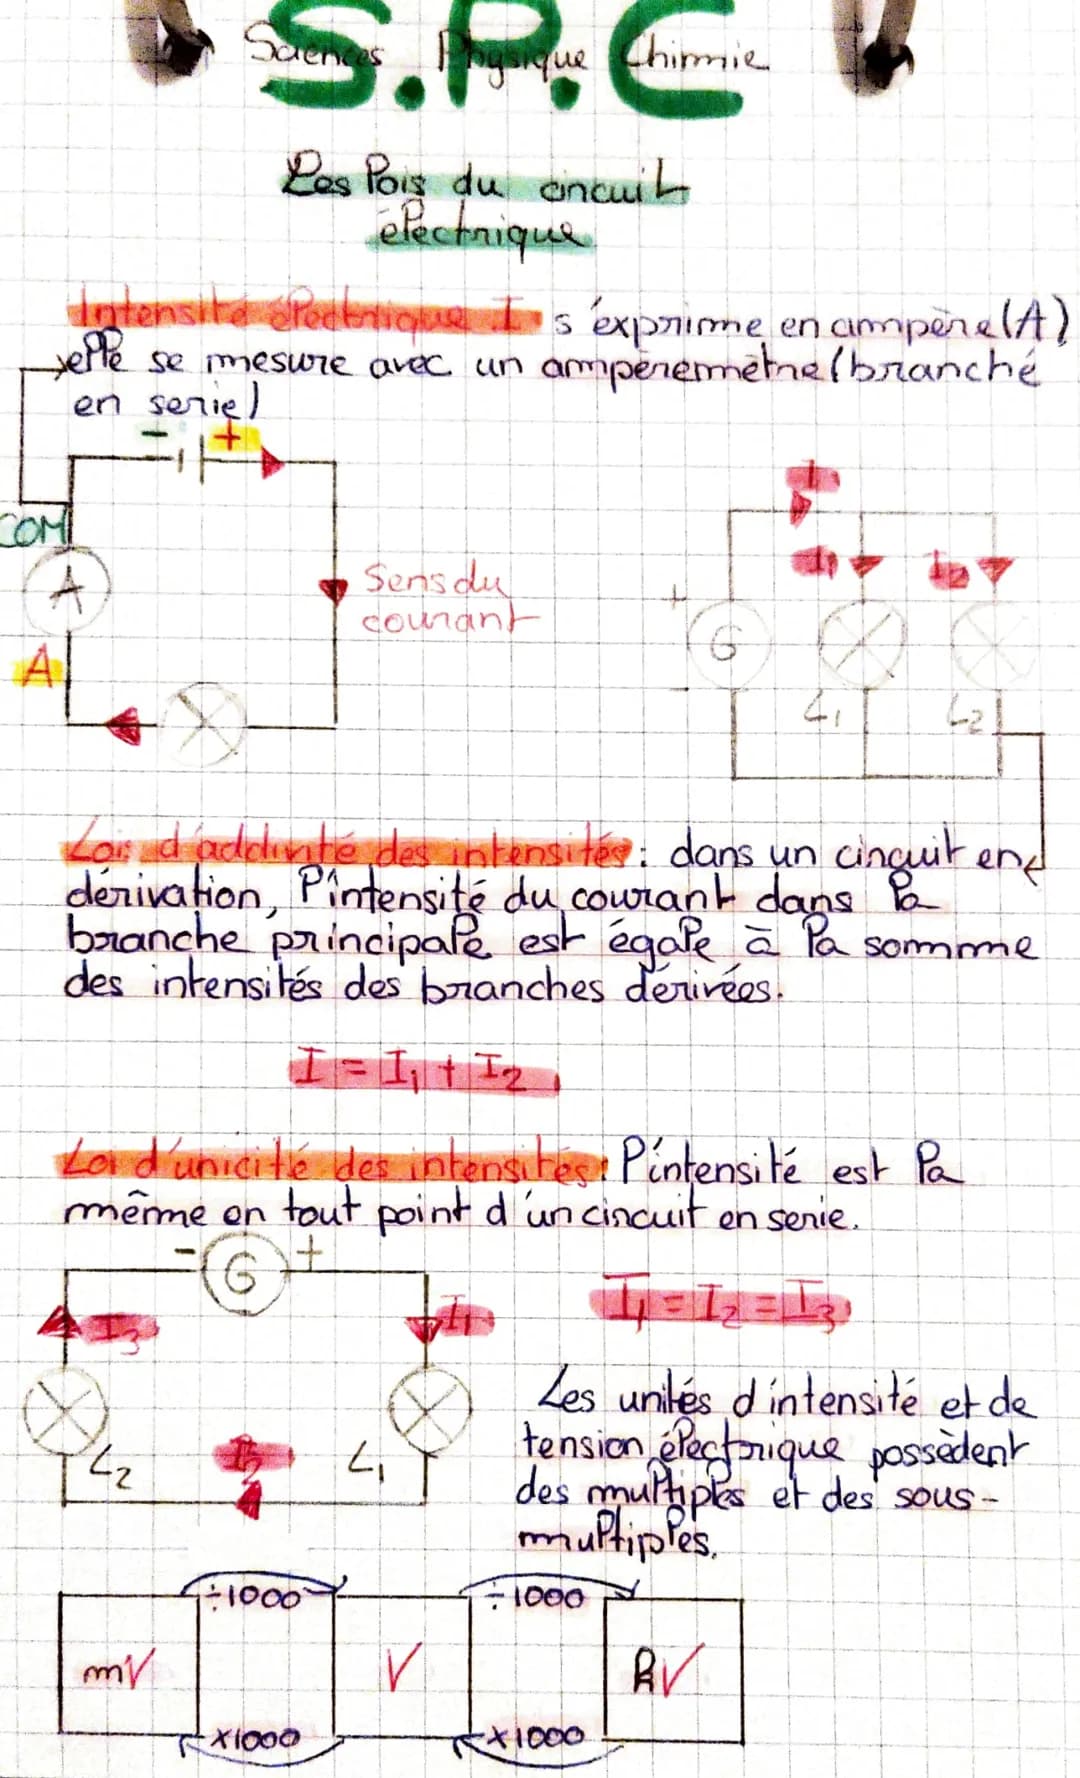 S.P.C
Sciences Physique Chimie
Les lois du circuit
électrique
Intensité électrique I s'exprime en ampère (A)
elle se mesure avec un ampèremètre (branché
en serie)
- +
COM
A
A
Sens du
courant
I
I1 I2
+
G
-
L1 L2
Lois d'addivité des intensités : dans un circuit en
dérivation, l'intensité du courant dans la
branche principale est égale à la somme
des intensités des branches dérivées.
I = I1 + I2
Loi d'unicité des intensités : l'intensité est la
même en tout point d'un circuit en serie.
- G +
I3 I1
I1 = I2 = I3
L2 I2 L1
Les unités d'intensité et de
tension électrique possèdent
des multiples et des sous-
multiples.
÷1000 ÷1000
mV V kV
×1000 ×1000